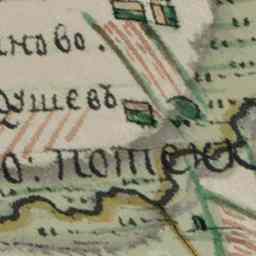 ново.
душевъ
о: потеки